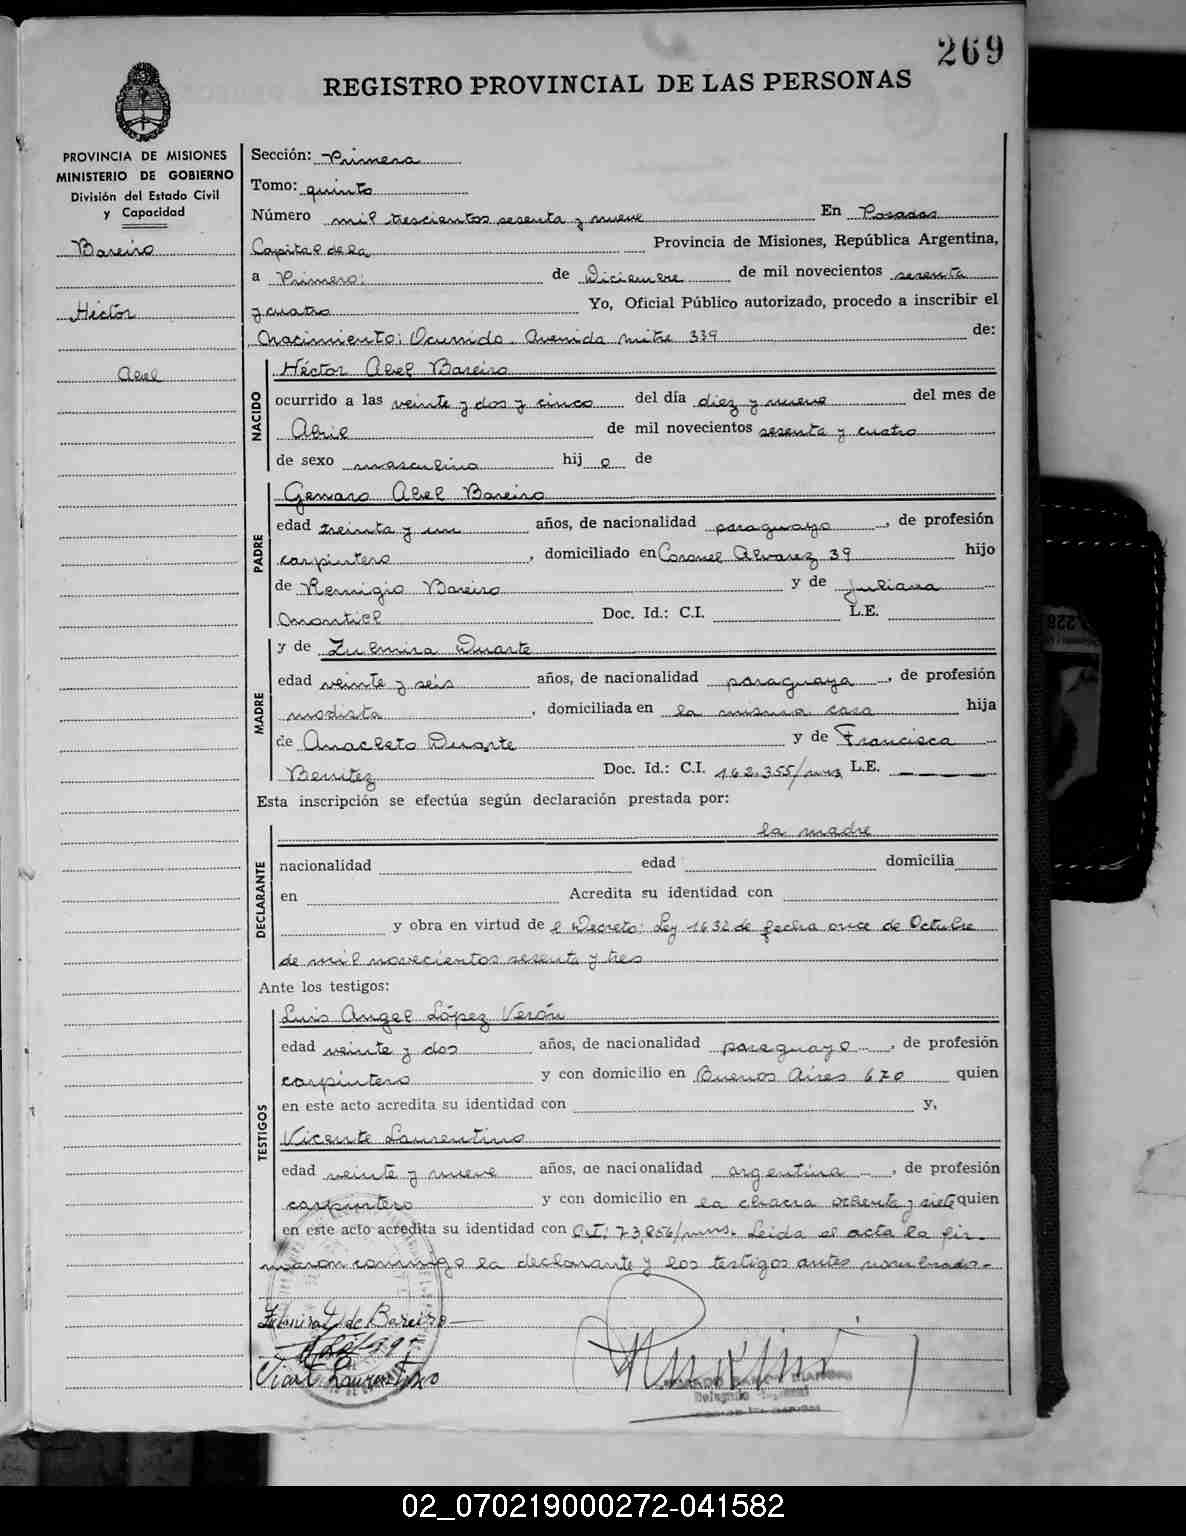 269
REGISTRO PROVINCIAL DE LAS PERSONAS
PROVINCIA DE MISIONES
MINISTERIO DE GOBIERNO
División del Estado Civil
y Capacidad
Bareiro
Héctor
Abel
Sección: Primera
Tomo: quinto
Número mil trescientos sesenta y nueve En Posadas
Capital de la Provincia de Misiones, República Argentina,
a Primero: de Diciembre de mil novecientos sesenta
y cuatro Yo, Oficial Público autorizado, procedo a inscribir el
Nacimiento: Ocurrido. Avenida Mitre 339 de:
NACIDO
Héctor Abel Bareiro
ocurrido a las veinte y dos y cinco del día diez y nueve del mes de
Abril de mil novecientos sesenta y cuatro
de sexo masculino hij o de
PADRE
Genaro Abel Bareiro
edad treinta y un años, de nacionalidad paraguayo, de profesión
carpintero, domiciliado en Coronel Alvarez 39 hijo
de Remigio Bareiro y de Juliana
Montiel Doc. Id.: C.I. L.E.
MADRE
y de Zulmira Duarte
edad veinte y seis años, de nacionalidad paraguaya, de profesión
modista, domiciliada en la misma casa hija
de Anacleto Duarte y de Francisca
Benitez Doc. Id.: C.I. 162.355/mns L.E.
Esta inscripción se efectúa según declaración prestada por:
DECLARANTE
la madre
nacionalidad edad domicilia
en Acredita su identidad con
y obra en virtud de l Decreto: Ley 1632 de fecha once de Octubre
de mil novecientos sesenta y tres
Ante los testigos:
TESTIGOS
Luis Angel López Verón
edad veinte y dos años, de nacionalidad paraguayo, de profesión
carpintero y con domicilio en Buenos Aires 670 quien
en este acto acredita su identidad con y,
Vicente Laurentino
edad veinte y nueve años, de nacionalidad argentina, de profesión
carpintero y con domicilio en la chacra ochenta y siete quien
en este acto acredita su identidad con C.I: 73,856/mns. Leida el acta la fir-
maron conmigo la declarante y los testigos antes nombrado-
Zulmira D de Bareiro
Vicent Laurentino
02_070219000272-041582